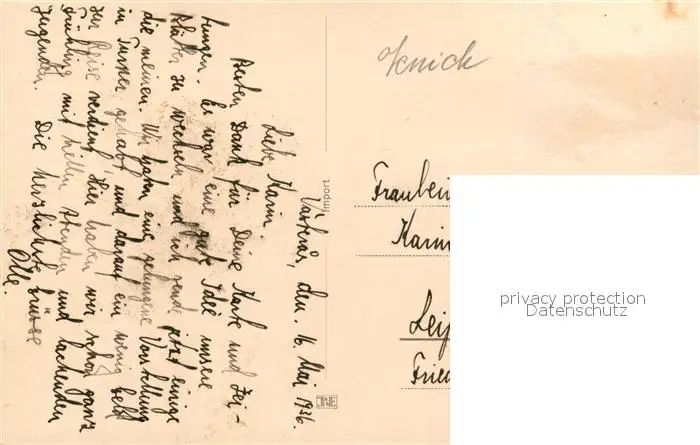 Västerås, den 16. Mai 1936.
Liebe Karin.
Besten Dank für Deine Karte und Zei-
tungen. Es war eine gute Idee unsere
Blätter zu wechseln und ich sende jetzt einige
die meinen. Wir haben eine gelungene Vorstellung
in Turnen gehabt und darauf ein wenig Geld
zur Reise verdient. Hier haben wir schon ganz
Frühling mit hellen Abenden und lachenden
Jugenden. Die herzlichste Grüsse
Olle.
Knick
Import
Fraulein
Karin
Leip
Fried
JNE
privacy protection
Datenschutz